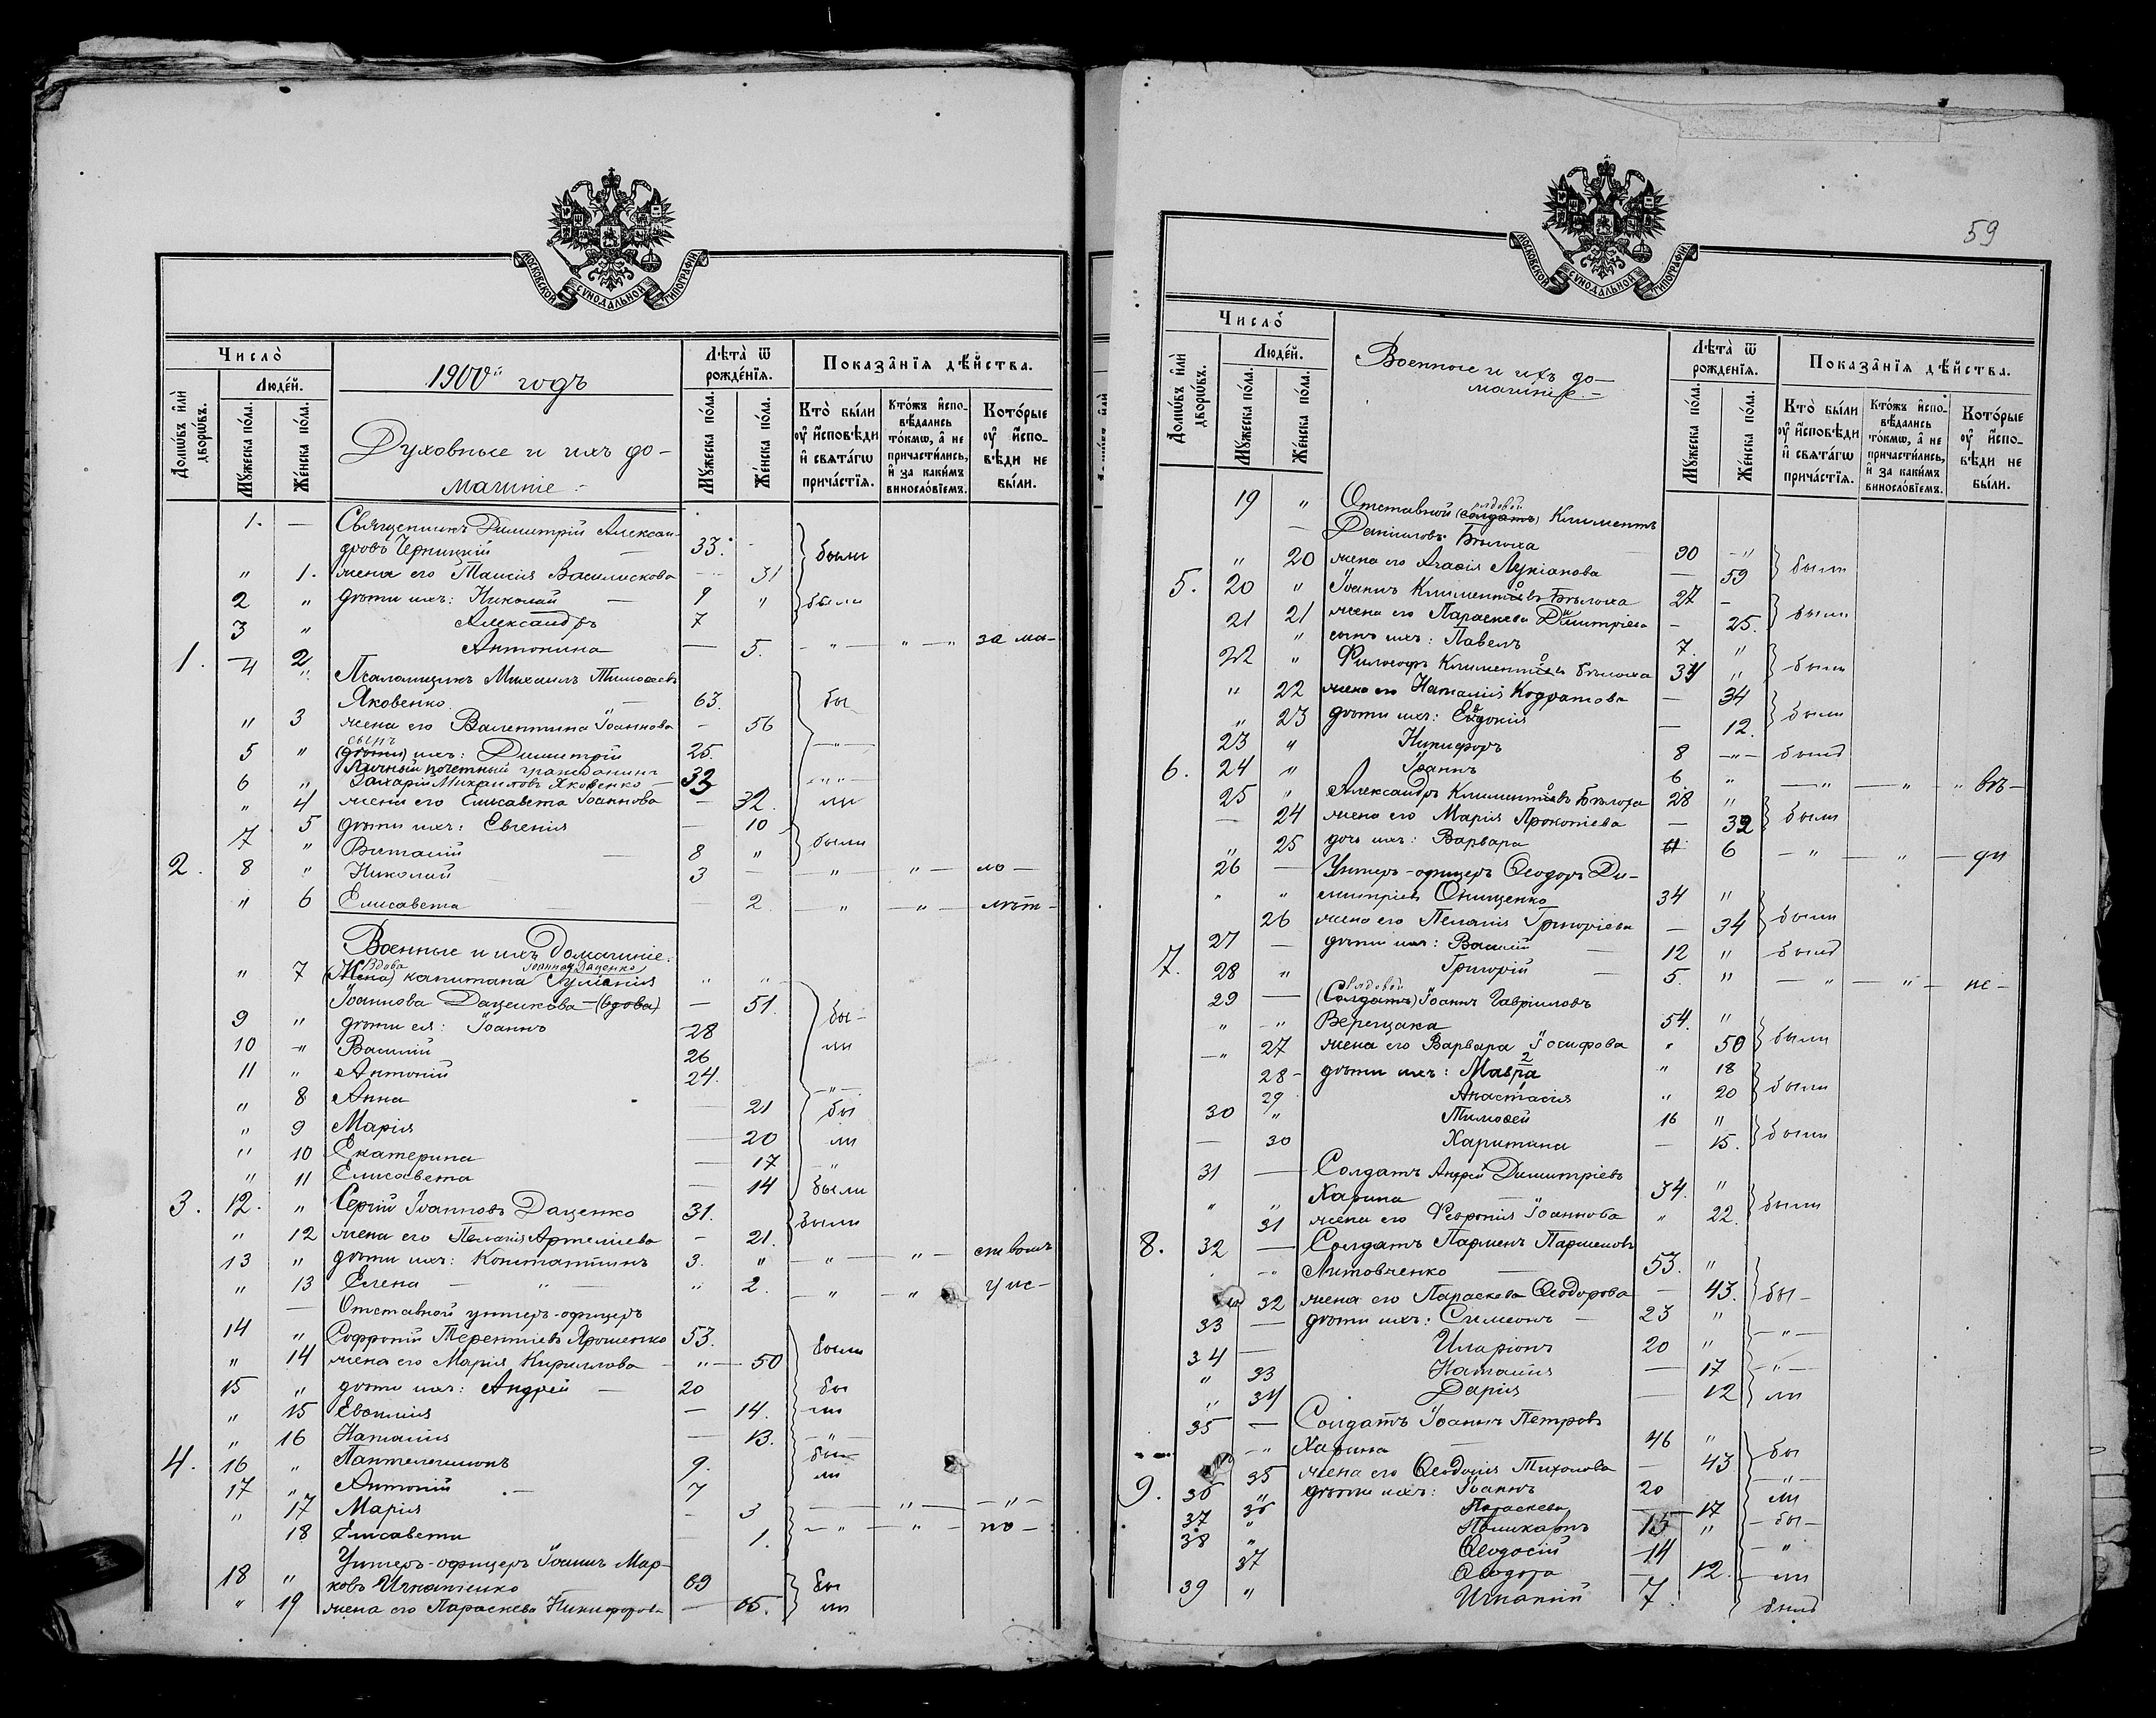 МОСКОВСКОЙ СѴНОДАЛЬНОЙ ТИПОГРАФІИ
Число̀
Люде́й.
Домѡ́въ и҆лѝ дворѡ́въ.
Мꙋ́жеска по́ла.
Же́нска по́ла.
1900й годъ
Духовные и ихъ до-
машніе:
Лѣ́та ѿ рожде́нїѧ.
Мꙋ́жеска по́ла.
Же́нска по́ла.
Показа̑нїѧ дѣ́йства.
Кто̀ бы́ли ᲂу҆ и҆сповѣ́ди и҆ свѧта́гѡ прича́стїѧ.
Кто́жъ и҆сповѣ́дались то́кмѡ, а҆ не причасти́лись, и҆ за каки́мъ винослові́емъ.
Кото́рые ᲂу҆ и҆сповѣ́ди не бы́ли.
1. — Священникъ Димитрій Алексан-
дровъ Черницкій 33. - были
" 1. жена его Таисія Василискова — 31
2 " дѣти ихъ: Николай 9 " были
3 " Александръ 7
1. — 2 Антонина — 5. - " - " - " за ма-
4 " Псаломщикъ Михаилъ Тимоѳеевъ
Яковенко 63. бы
" 3 жена его Валентина Іоаннова - 56
сынъ
5 " (дѣти) ихъ: Димитрій 25. — " —
Личный почетный гражданинъ
6 " Захарій Михаиловъ Яковенко 33 — " —
" 4 жена его Елисавета Іоаннова — 32. ли
5 дѣти ихъ: Евгенія — 10
7 " Виталій 8 " были
2. 8 " Николай 3 — — " — " — ло —
" 6 Елисавета — 2 — " — " — лѣт -
Военные и ихъ домашніе.
Вдова Іоанна Даценко
" 7 (Жена) капитана Іуліанія " "
Іоаннова Даценкова — (вдова) — 51.
9 " дѣти ея: Іоаннъ 28 бы-
10 " Василій 26 ли
11 " Антоній 24. — " —
" 8 Анна — 21 бы
" 9 Марія — 20 ли
" 10 Екатерина — 17 — "
" 11 Елисавета — 14 были
3. 12. " Сергій Іоанновъ Даценко 31. были
" 12 жена его Пелагія Артеміева - 21.
13 " дѣти ихъ: Константинъ 3. " — " — " — ствомъ
" 13 Елена — " — " 2. — " — " — у ис-
— Отставной унтеръ-офицеръ
14 " Софроній Терентіевъ Ярошенко 53. были
" 14 жена его Марія Кириллова — " — 50
15 " дѣти ихъ: Андрей — 20 бы
" 15 Евѳимія — 14. ли
" 16 Наталія — 13. — " —
4. 16 " Пантелеимонъ 9. бы-
17 " Антоній 7 ли
" 17 Марія - 3 — " — — " —
18 Елисавета — 1. — " — " — по —
Унтеръ-офицеръ Іоаннъ Мар-
18 " ковъ Игнатенко 69 бы
" 19 жена его Параскева Никифорова — 65. ли
59
МОСКОВСКОЙ СѴНОДАЛЬНОЙ ТИПОГРАФІИ
Число̀
Люде́й.
Домѡ́въ и҆лѝ дворѡ́въ.
Мꙋ́жеска по́ла.
Же́нска по́ла.
Военные и ихъ до-
машніе.—
Лѣ́та ѿ рожде́нїѧ.
Мꙋ́жеска по́ла.
Же́нска по́ла.
Показа̑нїѧ дѣ́йства.
Кто̀ бы́ли ᲂу҆ и҆сповѣ́ди и҆ свѧта́гѡ прича́стїѧ.
Кто́жъ и҆сповѣ́дались то́кмѡ, а҆ не причасти́лись, и҆ за каки́мъ винослові́емъ.
Кото́рые ᲂу҆ и҆сповѣ́ди не бы́ли.
рядовой
19 " Отставной (солдатъ) Климентъ
— Даниловъ Бѣлоха 90 - "
" 20 жена его Агаѳія Лукіанова — 59 были
5. 20 " Іоаннъ Климентовъ Бѣлоха 27 -
21 21 жена его Параскева Димитріева - 25. были
" сынъ ихъ: Павелъ 7. "
22 " Филоѳофъ Климентовъ Бѣлоха 34 " были
" 22 жена его Наталія Кодратова — 34
" 23 дѣти ихъ: Евдокія — 12. были
23 " Никифоръ 8 — " — былъ
6. 24 " Іоаннъ 6 " — " — " — " въ —
25 " Александръ Климентовъ Бѣлоха 28 "
— 24 жена его Марія Прокопіева — 32 были
" 25 дочь ихъ: Варвара 6 — " — " — ди
26 — Унтеръ-офицеръ Ѳеодоръ Ди-
" " митріевъ Онищенко 34 "
26 жена его Пелагія Григоріева — 34 были
27 — дѣти ихъ: Василій 12 " былъ
7. 28 " Григорій 5. " — " — " — не -
Рядовой
29 — (Солдатъ) Іоаннъ Гавріиловъ
" - " Верещака 54. "
— " 27 жена его Варвара Іосифова " 50 были
2
28 - дѣти ихъ: Мавра " 18
29 Анастасія " 20 были
30 " Тимоѳей 16 "
— 30 Харитина — 15. были
31 — Солдатъ Андрей Димитріевъ
" " Харина 34. "
31 жена его Февронія Іоаннова " 22. были
8. 32 — Солдатъ Парменъ Парменовъ
" - " Литовченко 53. "
32 жена его Параскева Ѳеодорова — 43. бы-
33 — дѣти ихъ: Симеонъ — 23 "
34 — Иларіонъ 20 " — " —
" 33 Наталія — 17 — " —
" 34 Дарія — 12 ли
35 — Солдатъ Іоаннъ Петровъ
- " Харина 46 " бы
35 жена его Ѳеодосія Тихонова — 43
9. 36 " дѣти ихъ: Іоаннъ 20 — " —
36 Параскева — 17 ли
37 " Поликарпъ 15 " - бы -
38 " Ѳеодосій 14 — "
37 Ѳеодора — 12. — ли
39 " Игнатій 7. былъ